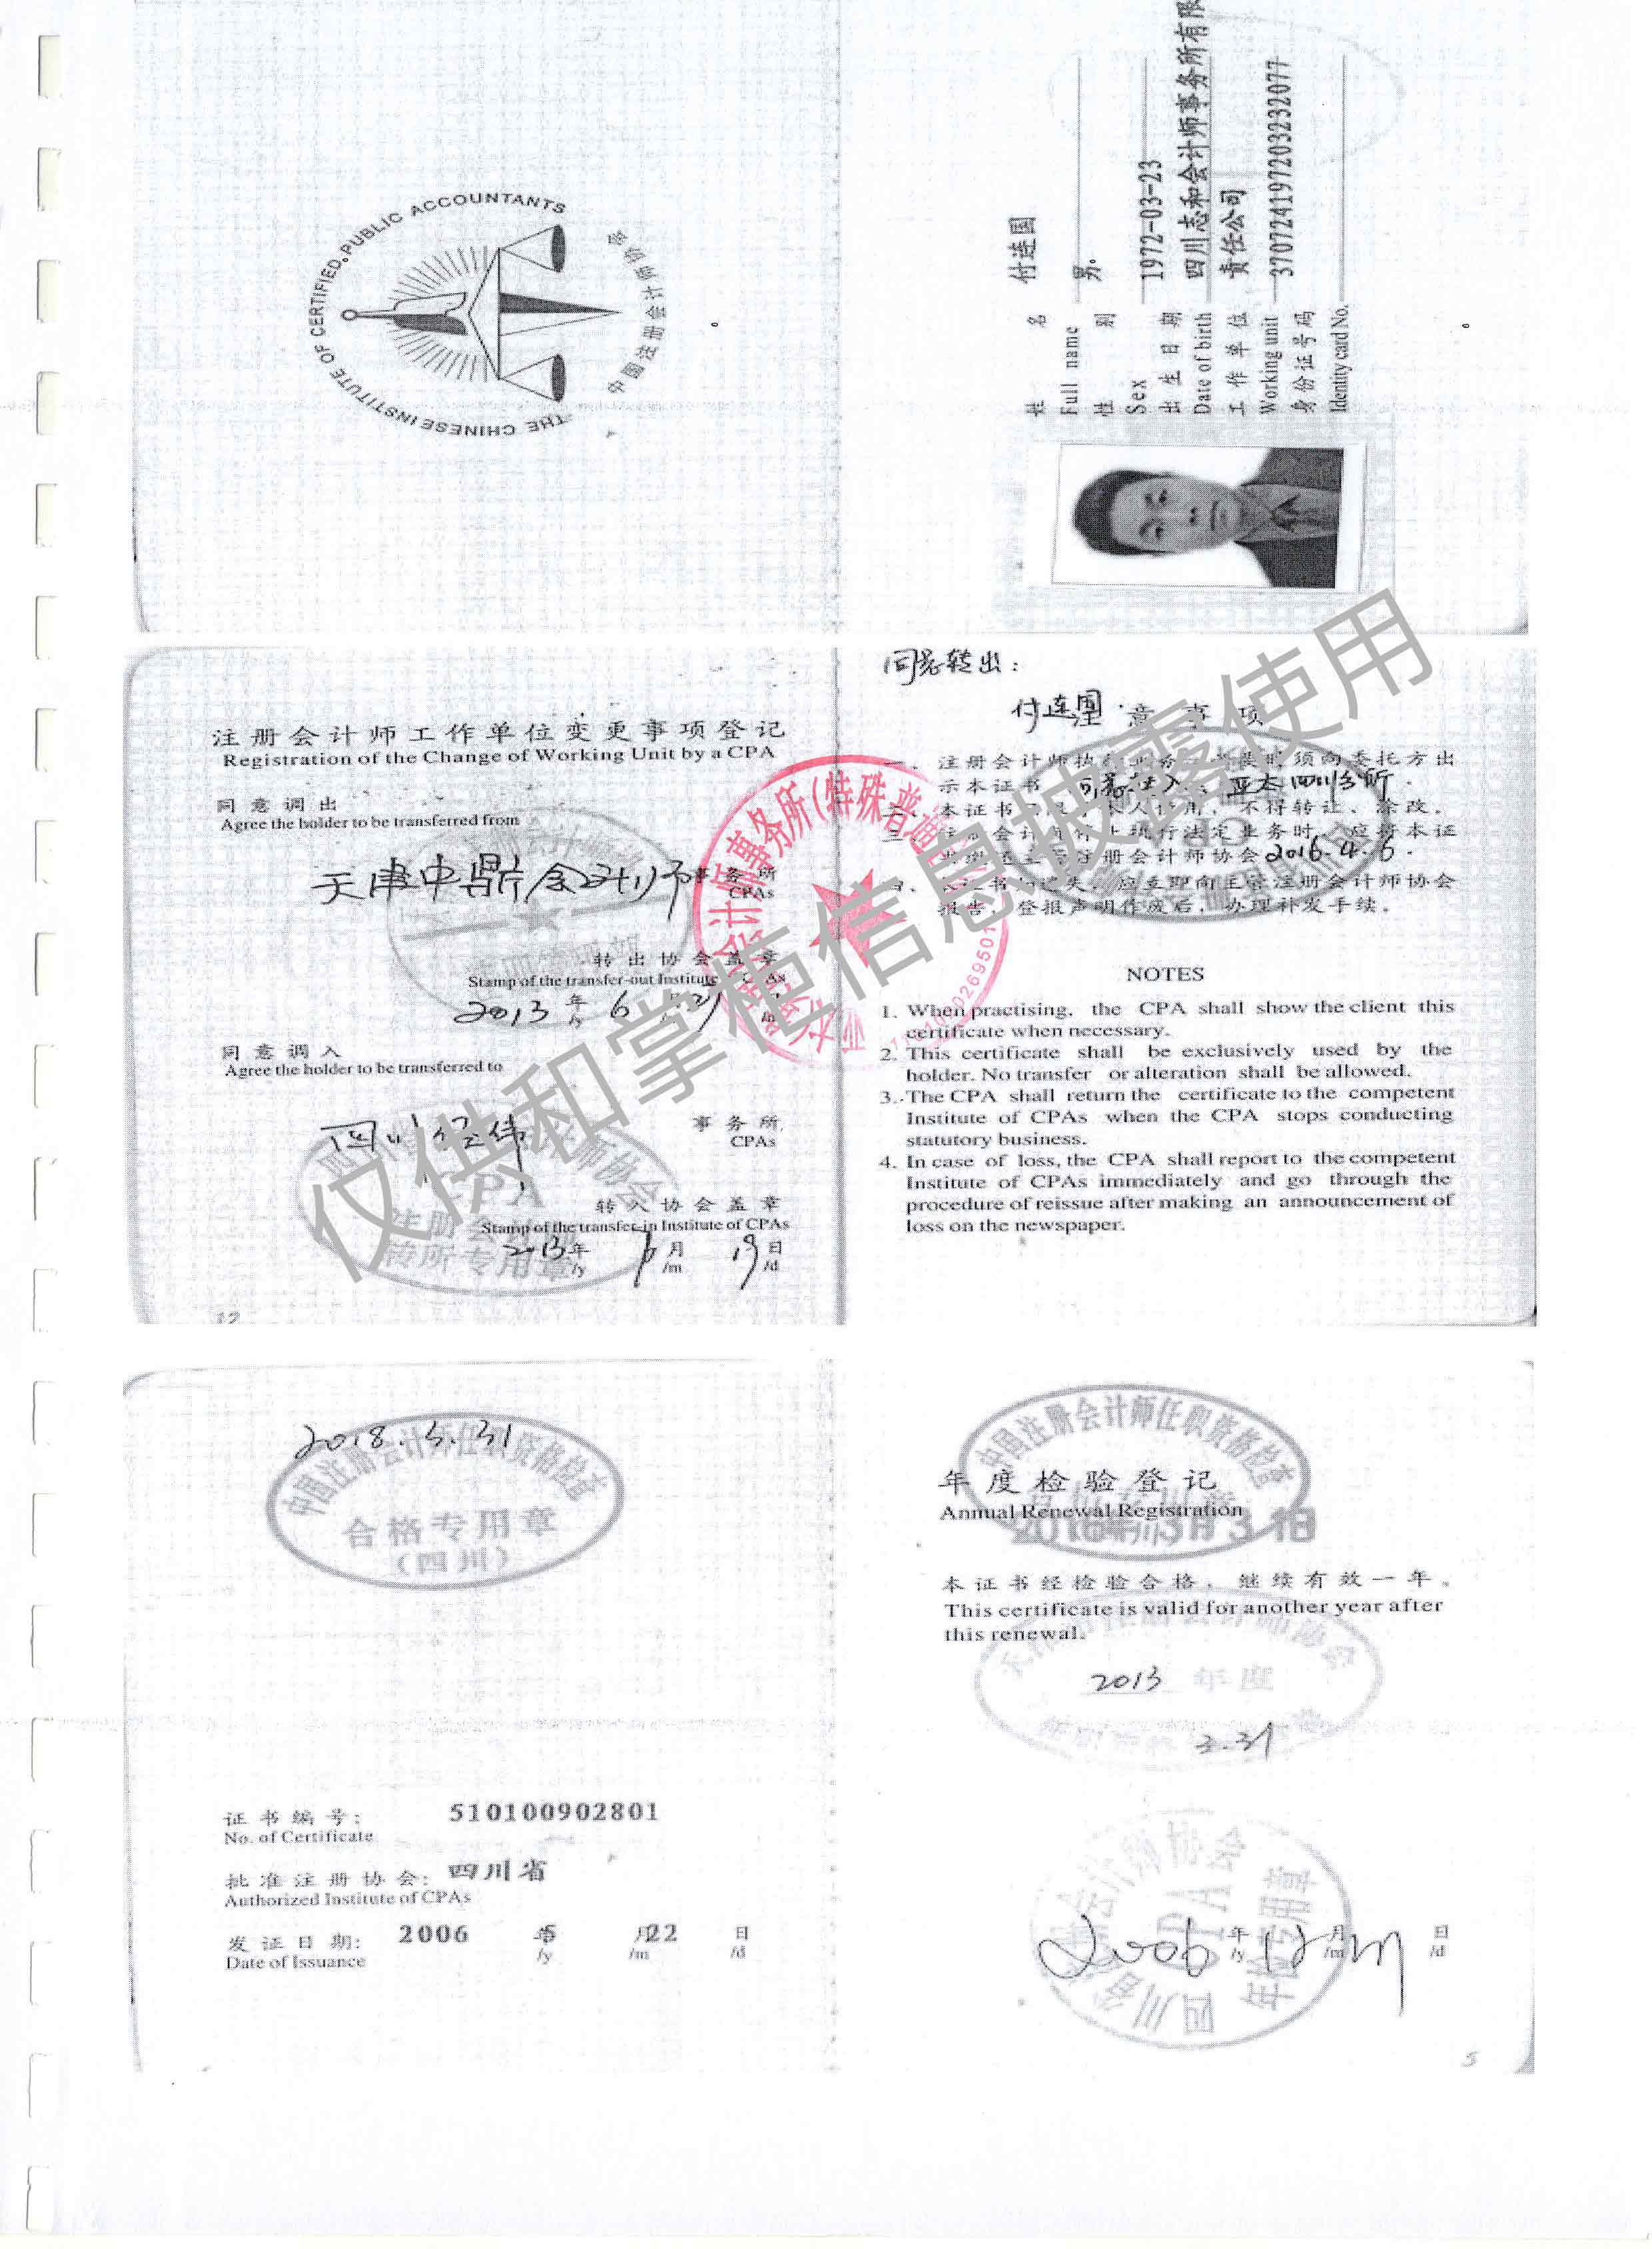 THE CHINESE INSTITUTE OF CERTIFIED PUBLIC ACCOUNTANTS
中国注册会计师协会
姓 名 付连国
Full name
性 别 男
Sex
出生日期 1972-03-23
Date of birth
工作单位 四川志和会计师事务所有限
Working unit 责任公司
身份证号码 370724197203232077
Identity card No.
注册会计师工作单位变更事项登记
Registration of the Change of Working Unit by a CPA
同意调出
Agree the holder to be transferred from
天津中鼎会计师事务所
CPAs
转出协会盖章
Stamp of the transfer-out Institute of CPAs
2013年 6
/y
同意调入
Agree the holder to be transferred to
四川经纬 事务所
CPAs
转入协会盖章
Stamp of the transfer-in Institute of CPAs
2013年 月 19日
/y /m /d
12
同意转出：
付连国
意 事 项
一、注册会计师执行业务，必要时须向委托方出
示本证书
同意转入：亚太四川分所
本证书 本人使用，不得转让、涂改。
三、注册会计师停止执行法定业务时，应将本证
注册会计师协会 2016.4.6
四、本证书如遗失，应立即向主管注册会计师协会
报告，登报声明作废后，办理补发手续。
NOTES
1. When practising, the CPA shall show the client this
certificate when necessary.
2. This certificate shall be exclusively used by the
holder. No transfer or alteration shall be allowed.
3. The CPA shall return the certificate to the competent
Institute of CPAs when the CPA stops conducting
statutory business.
4. In case of loss, the CPA shall report to the competent
Institute of CPAs immediately and go through the
procedure of reissue after making an announcement of
loss on the newspaper.
会计师事务所（特殊普通
仅供和掌柜信息披露使用
2018.3.31
中国注册会计师任职资格检查
合格专用章
（四川）
证书编号： 510100902801
No. of Certificate
批准注册协会： 四川省
Authorized Institute of CPAs
发证日期： 2006 年 5 月 22 日
Date of Issuance /y /m /d
中国注册会计师任职资格检查
年度检验登记
Annual Renewal Registration
2016年3月31日
本证书经检验合格，继续有效一年。
This certificate is valid for another year after
this renewal.
2013 年度
3.31
四川省注册会计师协会
CPA
年检专用章
2006 年 12 月 日
/y /m /d
5